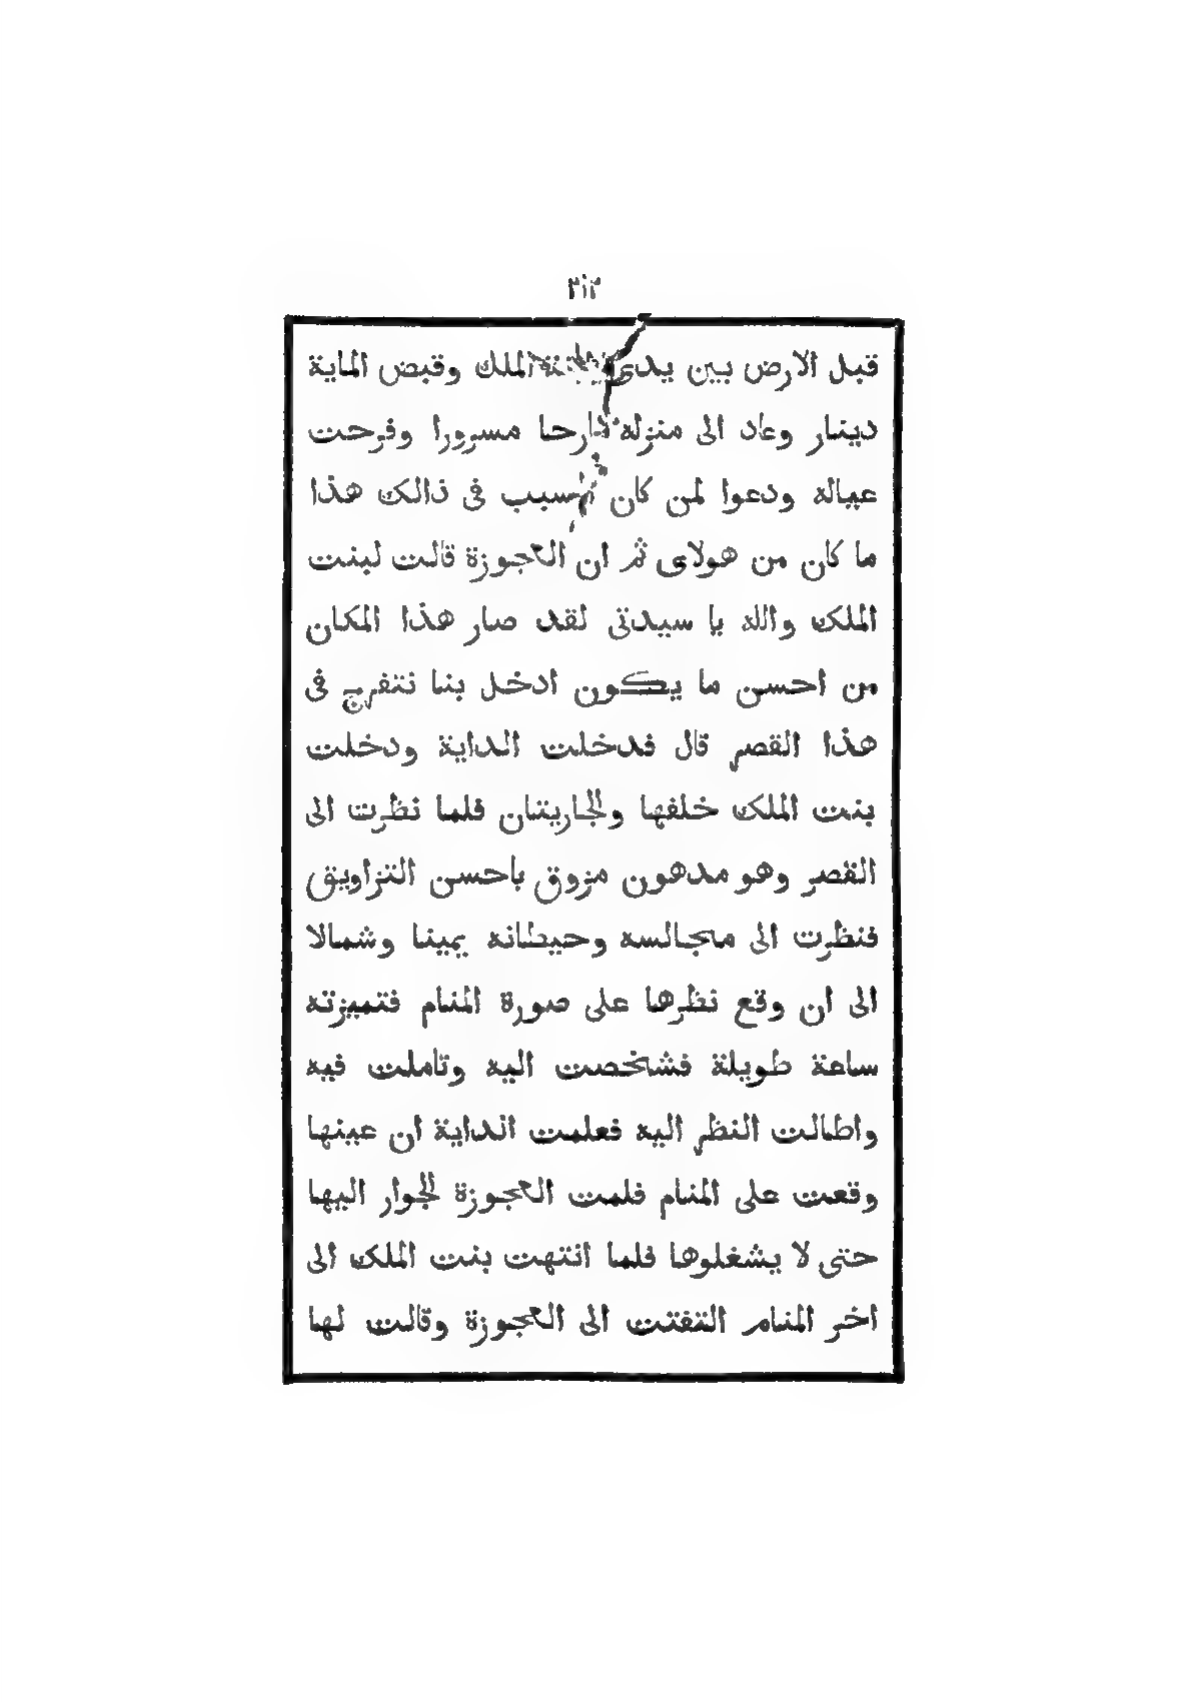 ٣١٢
قبل الارض بين يدى الملك وقبض الماية
دينار وعاد الى منزله فارحا مسرورا وفرحت
عياله ودعوا لمن كان سبب فى ذالك هذا
ما كان من هولاى ثم ان العجوزة قالت لبنت
الملك والله يا سيدتى لقد صار هذا المكان
من احسن ما يكون ادخل بنا نتفرج فى
هذا القصر قال فدخلت الداية ودخلت
بنت الملك خلفها والجاريتان فلما نظرت الى
القصر وهو مدهون مزوق باحسن التزاويق
فنظرت الى مجالسه وحيطانه يمينا وشمالا
الى ان وقع نظرها على صورة المنام فتميزته
ساعة طويلة فشخصت اليه وتاملت فيه
واطالت النظر اليه فعلمت الداية ان عينها
وقعت على المنام فلمت العجوزة الجوار اليها
حتى لا يشغلوها فلما انتهت بنت الملك الى
اخر المنام التفتت الى العجوزة وقالت لها